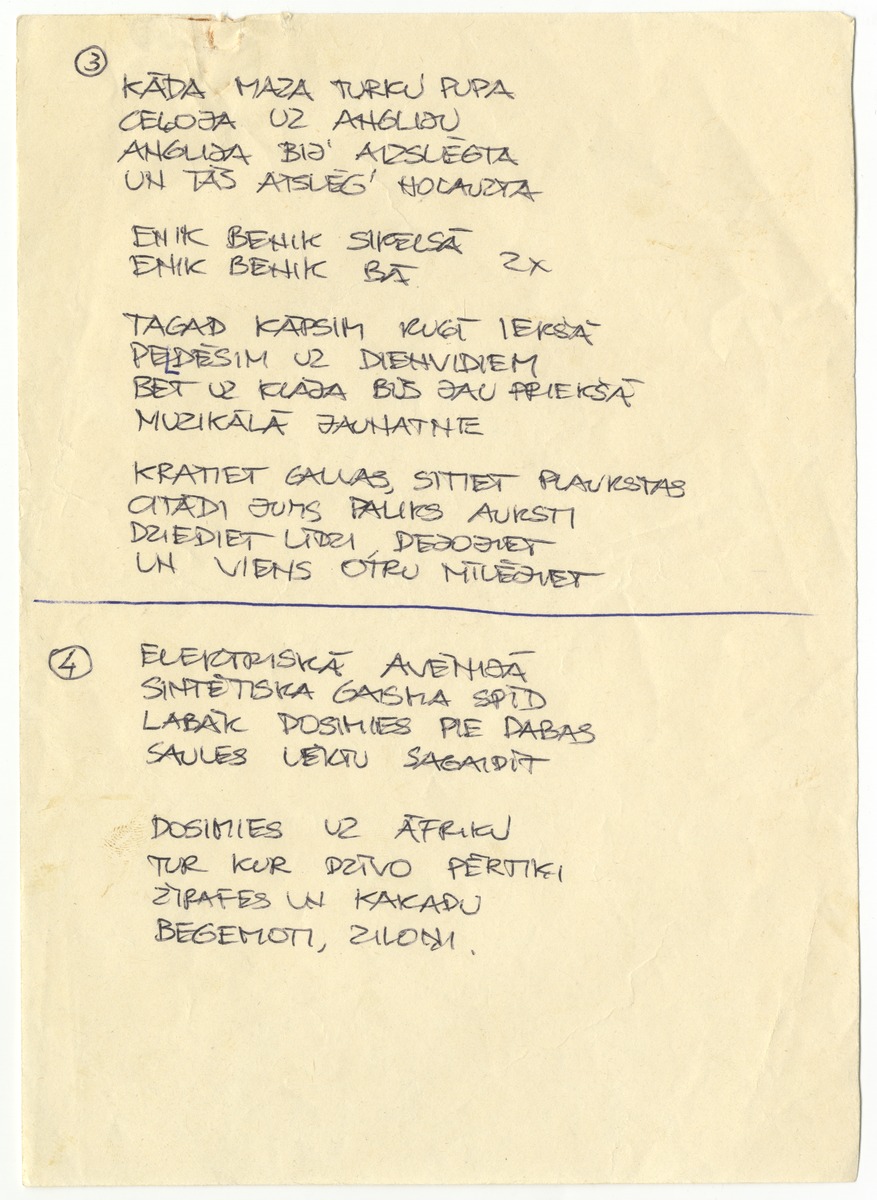 3
KĀDA MAZA TURKU PUPA
CEĻOJA UZ ANGLIJU
ANGLIJA BIJ' AIZSLĒGTA
UN TĀS ATSLĒG' NOLAUZTA
ENIK BENIK SIKELSĀ
ENIK BENIK BĀ 2x
TAGAD KĀPSIM KUĢĪ IEKŠĀ
PELDĒSIM UZ DIENVIDIEM
BET UZ KLĀJA BŪS JAU PRIEKŠĀ
MUZIKĀLĀ JAUNATNE
KRATIET GALVAS, SITIET PLAUKSTAS
CITĀDI JUMS PALIKS AUKSTI
DZIEDIET LĪDZI, DEJOJIET
UN VIENS OTRU MĪLĒJIET
4 ELEKTRISKĀ AVĒNIJĀ
SINTĒTISKA GAISMA SPĪD
LABĀK DOSIMIES PIE DABAS
SAULES LĒKTU SAGAIDĪT
DOSIMIES UZ ĀFRIKU
TUR KUR DZĪVO PĒRTIĶI
ŽIRAFES UN KAKADU
BEGEMOTI, ZILOŅI.